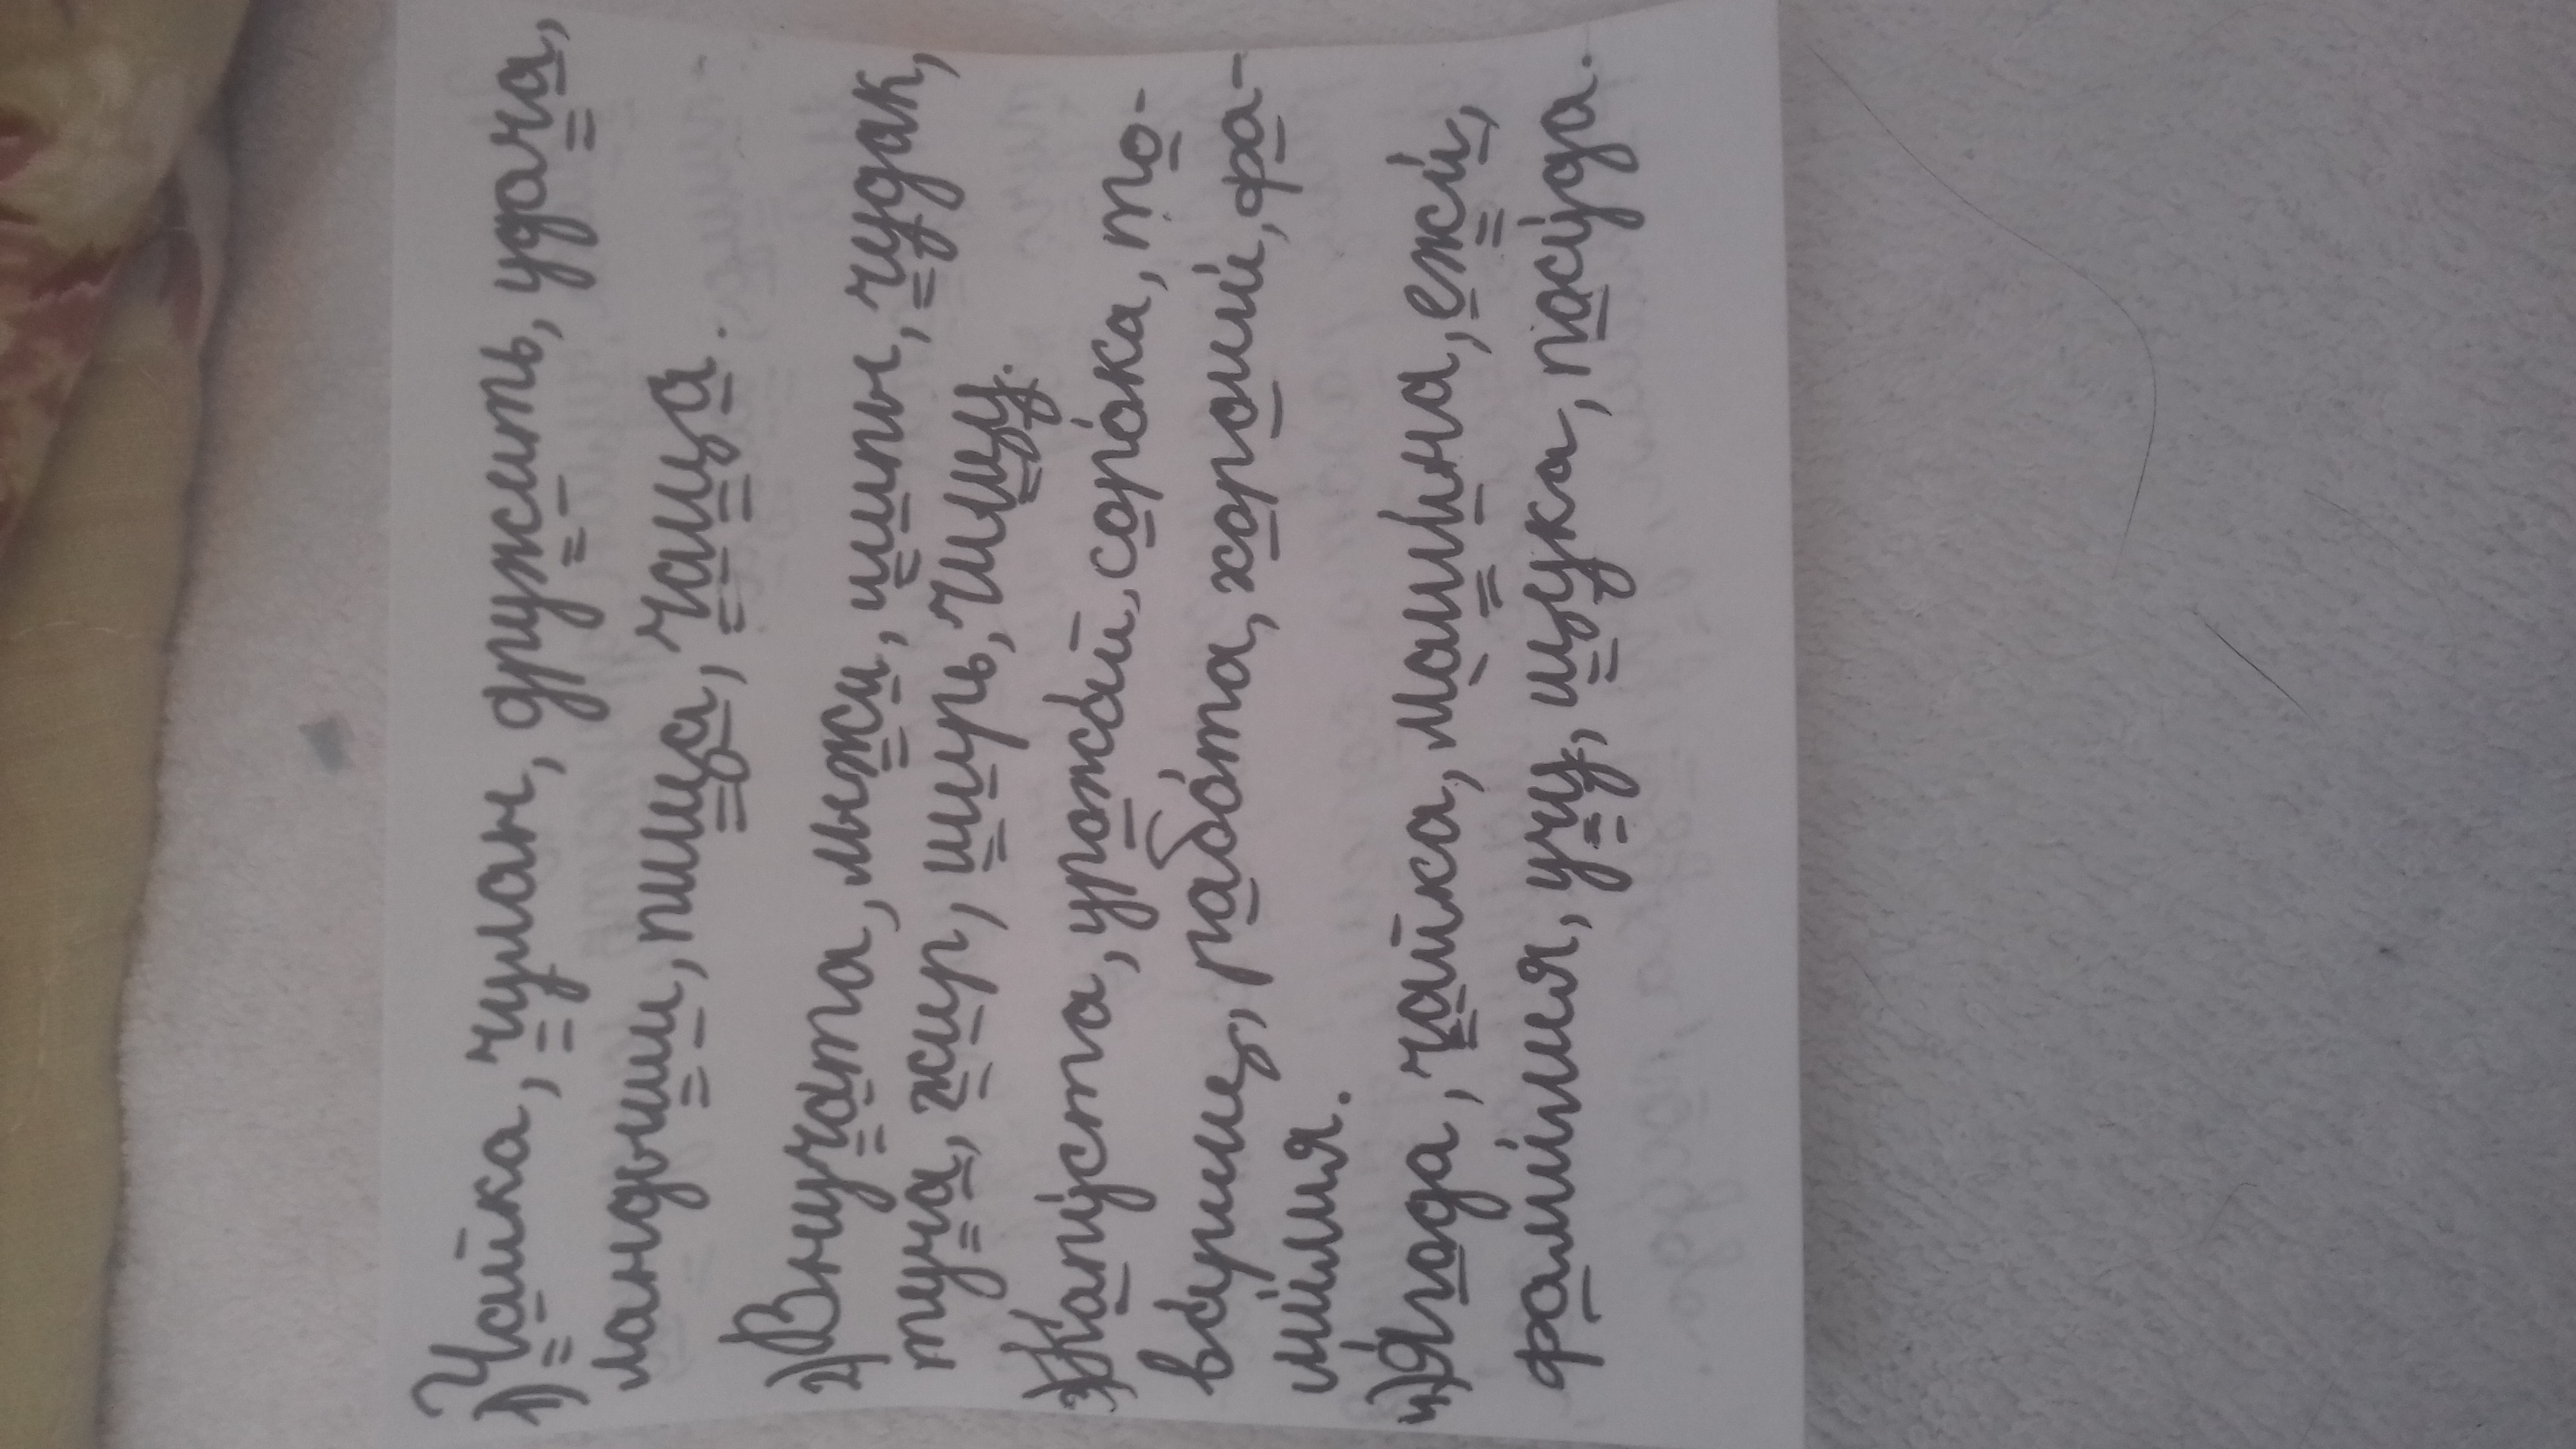 1) Чайка, чулан, дружить, удача,
ландыши, пища, чаща.
2) Внучата, лыжи, шипы, чудак,
туча, жир, ширь, чищу.
3) Капуста, урожай, сорока, то-
варищ, работа, хороший, фа-
милия.
4) Ягода, чайка, машина, ежи,
фамилия, учу, щука, посуда.